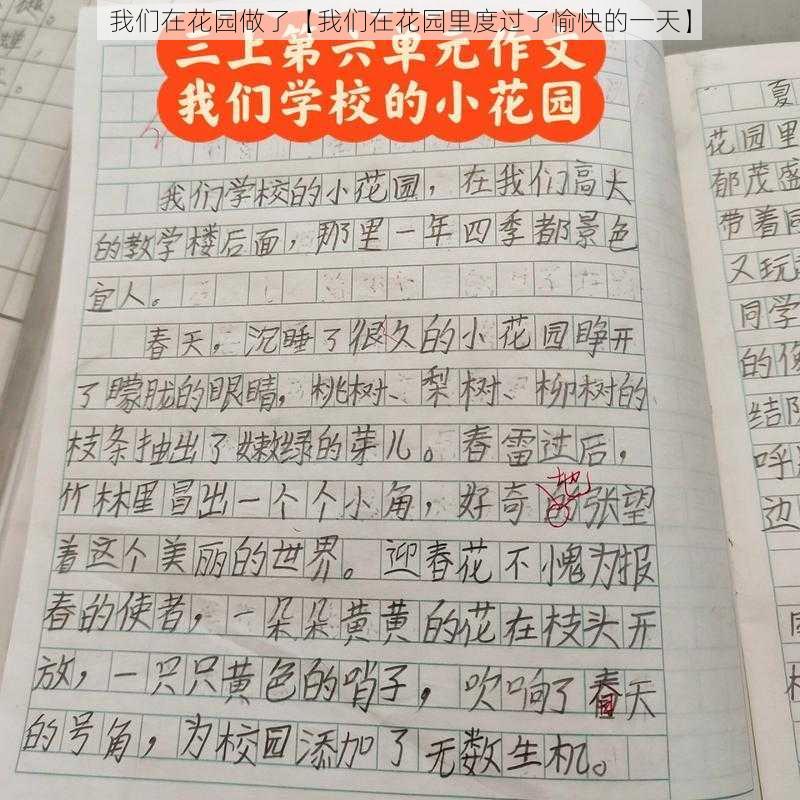 我们在花园做了【我们在花园里度过了愉快的一天】
三上第六单元作文
我们学校的小花园
我们学校的小花园，在我们高大
的教学楼后面，那里一年四季都景色
宜人。
春天，沉睡了很久的小花园睁开
了朦胧的眼睛，桃树、梨树、柳树的
枝条抽出了嫩绿的芽儿。春雷过后，
竹林里冒出一个个小角，好奇地张望
着这个美丽的世界。迎春花不愧为报
春的使者，一朵朵黄黄的花在枝头开
放，一只只黄色的哨子，吹响了春天
的号角，为校园添加了无数生机。
夏
花园里
郁茂盛
带着同
又玩
同学
的
结队
呼
边